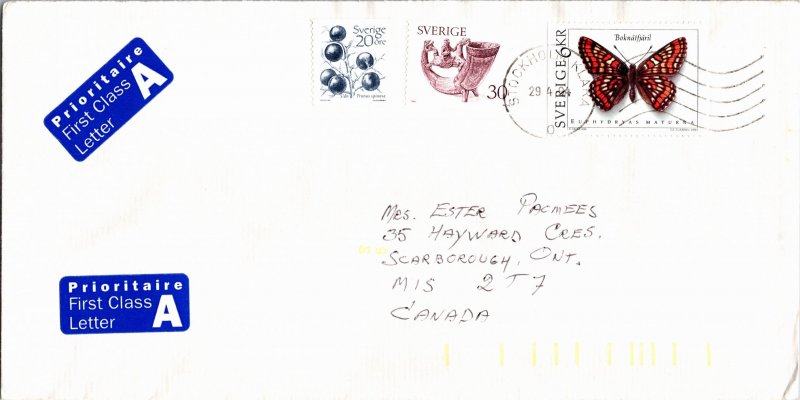 Prioritaire
First Class
Letter
A
Sverige
20 öre
Slån Prunus spinosa
SVERIGE
30
STOCKHOLM KLARA
29 4 94
SVERIGE 6 KR
Boknätfjäril
EUPHYDRYAS MATURNA
MRS. ESTER PACMEES
35 HAYWARD CRES.
SCARBOROUGH, ONT.
MIS 2T7
CANADA
Prioritaire
First Class
Letter
A